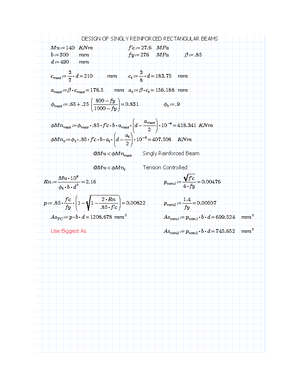 DESIGN OF SINGLY REINFORCED RECTANGULAR BEAMS
Mu:=149 KNm f'c:=27.6 MPa
b:=300 mm fy:=276 MPa β:=.85
d:=490 mm
c_max:=3/7·d=210 mm c_t:=3/8·d=183.75 mm
a_max:=β·c_max=178.5 mm a_t:=β·c_t=156.188 mm
ϕ_max:=.65+.25(800−fy/1000−fy)=0.831 ϕ_t:=.9
ϕMn_max:=ϕ_max·.85·f'c·b·a_max·(d−a_max/2)·10^−6=418.341 KNm
ϕMn_t:=ϕ_t·.85·f'c·b·a_t·(d−a_t/2)·10^−6=407.508 KNm
@Mu<ϕMn_max Singly Reinforced Beam
@Mu<ϕMn_t Tension Controlled
Rn:=Mu·10^6/ϕ_t·b·d^2=2.16 p_min1:=√f'c/4·fy=0.00476
p:=.85·f'c/fy·(1−√1−2·Rn/.85·f'c)=0.00822 p_min2:=1.4/fy=0.00507
:=p·b·d=1208.678 mm^2 As_min1:=p_min1·b·d=699.524 mm^2
Use Biggest As As_min2:=p_min2·b·d=745.652 mm^2